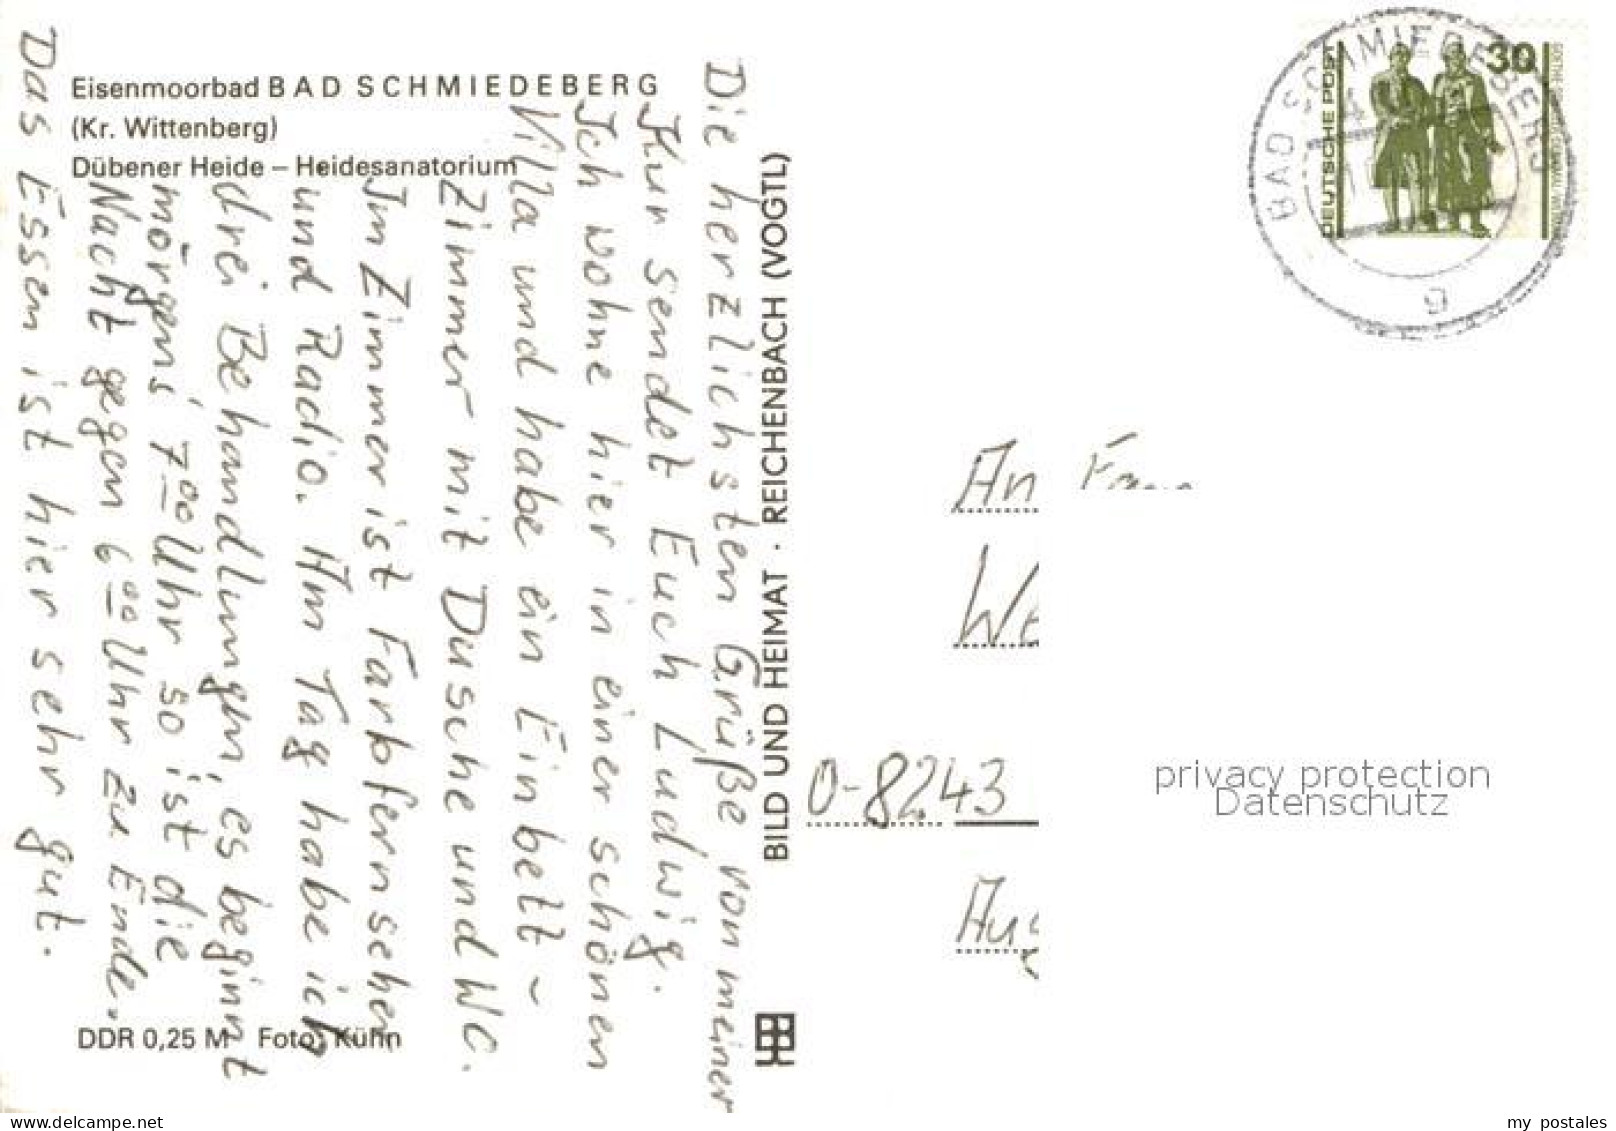 Eisenmoorbad BAD SCHMIEDEBERG
(Kr. Wittenberg)
Dübener Heide – Heidesanatorium
Die herzlichsten Grüße von meiner
Kur sendet Euch Ludwig.
Ich wohne hier in einer schönen
Villa und habe ein Einbett-
Zimmer mit Dusche und WC.
Im Zimmer ist Farbfernseher
und Radio. Am Tag habe ich
drei Behandlungen, es beginnt
morgens 7.00 Uhr so ist die
Nacht gegen 6.00 Uhr zu Ende.
Das Essen ist hier sehr gut.
DDR 0,25 M Foto: Kühn
BILD UND HEIMAT · REICHENBACH (VOGTL)
DEUTSCHE POST
30
BAD SCHMIEDEBERG
g
An
O-8243
privacy protection
Datenschutz
delcampe.net
my postales